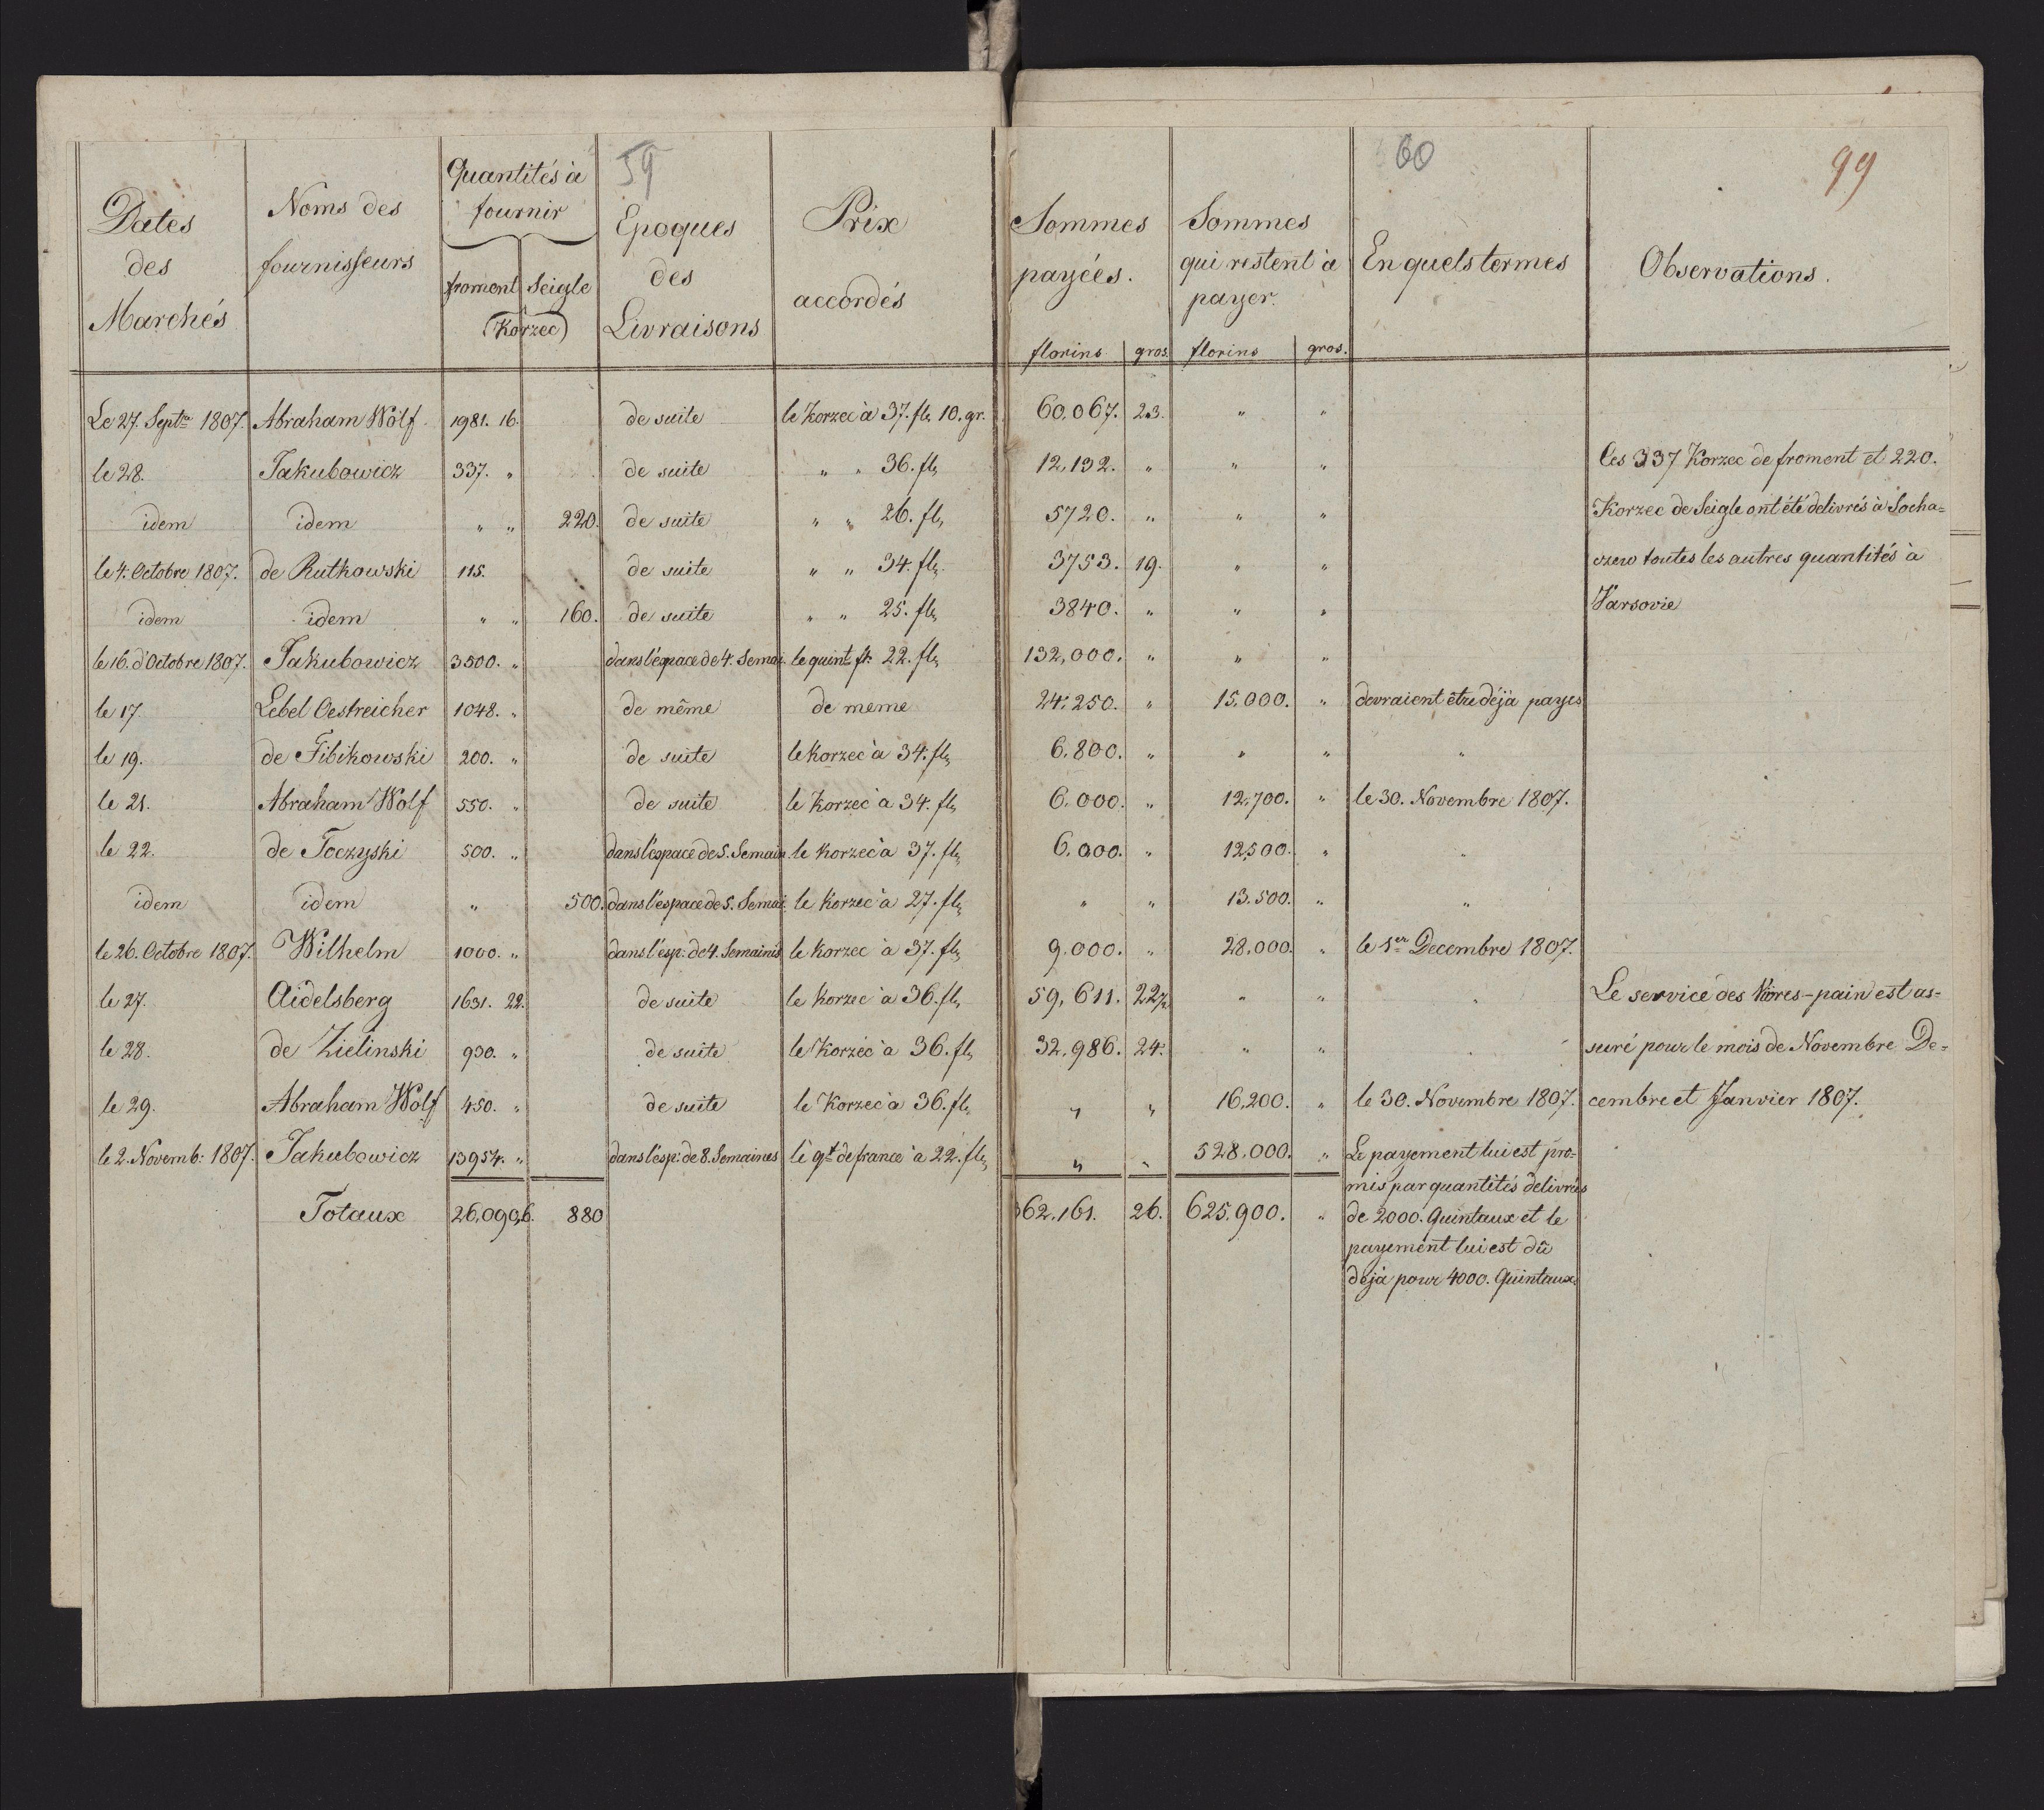 59
60
99
Dates des Marchés
Noms des fournisseurs
Quantités à fournir
froment Seigle
(Korzec)
Epoques des Livraisons
Prix accordés
Sommes payées.
Sommes qui restent à payer.
En quels termes
Observations.
florins gros. florins gros.
Le 27. Septre 1807. Abraham Wolf 1981. 16. de suite le Korzec à 37. fl. 10. gr. 60,067. 23. " "
le 28. Jakubowicz 337. " de suite " " 36. fl. 12,132. " " " les 337 Korzec de froment et 220.
idem idem " " 220. de suite " " 26. fl. 5720. " " " Korzec de Seigle ont été delivrés à Socha=
le 4. Octobre 1807. de Rutkowski 115. de suite " " 34. fl. 3753. 19. " " czew toutes les autres quantités à
idem idem " " 160. de suite " " 25. fl. 3840. " " " Varsovie
le 16. d'Octobre 1807. Jakubowicz 3500. " dans l'espace de 4. Semai. le quint. fr. 22. fl. 132,000. " " "
le 17. Lebel Oestreicher 1048. " de même de meme 24,250. " 15,000. " devraient être déja payes
le 19. de Fibikowski 200. " de suite le Korzec à 34. fl. 6,800. " " " "
le 21. Abraham Wolf 550. " de suite le Korzec à 34. fl. 6,000. " 12,700. " le 30. Novembre 1807.
le 22. de Toczyski 500. " dans l'espace de 5. Semain. le Korzec à 37. fl. 6,000. " 12,500. " "
idem idem " 500. dans l'espace de 5. Semai. le Korzec à 27. fl. " " 13,500. " "
le 26. Octobre 1807. Wilhelm 1000. " dans l'esp: de 4. Semaines le Korzec à 37. fl. 9,000. " 28,000. " le 1er Decembre 1807.
le 27. Aidelsberg 1631. 22. de suite le Korzec à 36. fl. 59,611. 22½ " " " Le service des vivres-pain est as=
le 28. de Zielinski 930. " de suite le Korzec à 36. fl. 32,986. 24. " " suré pour le mois de Novembre De=
le 29. Abraham Wolf 450. " de suite le Korzec à 36. fl. " " 16,200. " le 30. Novembre 1807. cembre et Janvier 1807.
le 2. Novemb: 1807. Jakubowicz 13954. " dans l'esp: de 8. Semaines le qt. de france à 22. fl. " " 528,000. " Le payement lui est pro=
mis par quantités delivrées
Totaux 26,090,6. 880 362,161. 26. 625,900. " de 2000. Quintaux et le
payement lui est dû
déjà pour 4000. Quintaux.